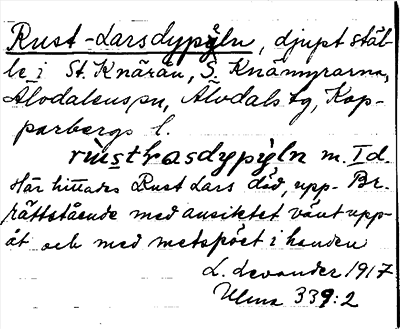 Rust-Larsdypỳln, djupt ställe
i St. Knärån, S. Knämyrarna,
Älvdalens sn, Älvdals tg, Kopparbergs
l.
rùstḷasdypỳln m. Id.
Här hittades Rust Lars död, upp- Br.
rättstående med ansiktet vänt upp-
åt och med metspöet i handen
L. Levander 1917
Ulma 339:2